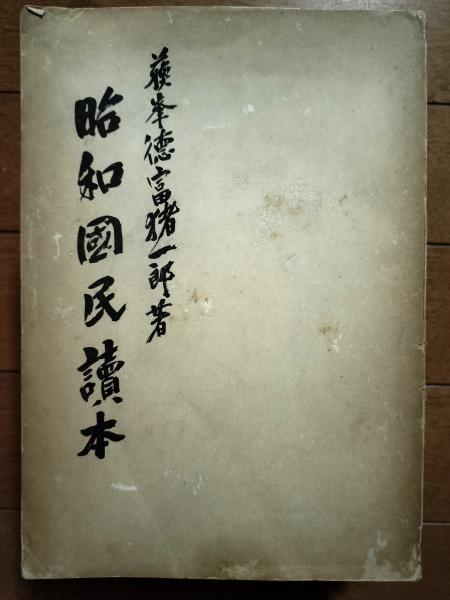 蘇峯德富猪一郎著
昭和國民讀本